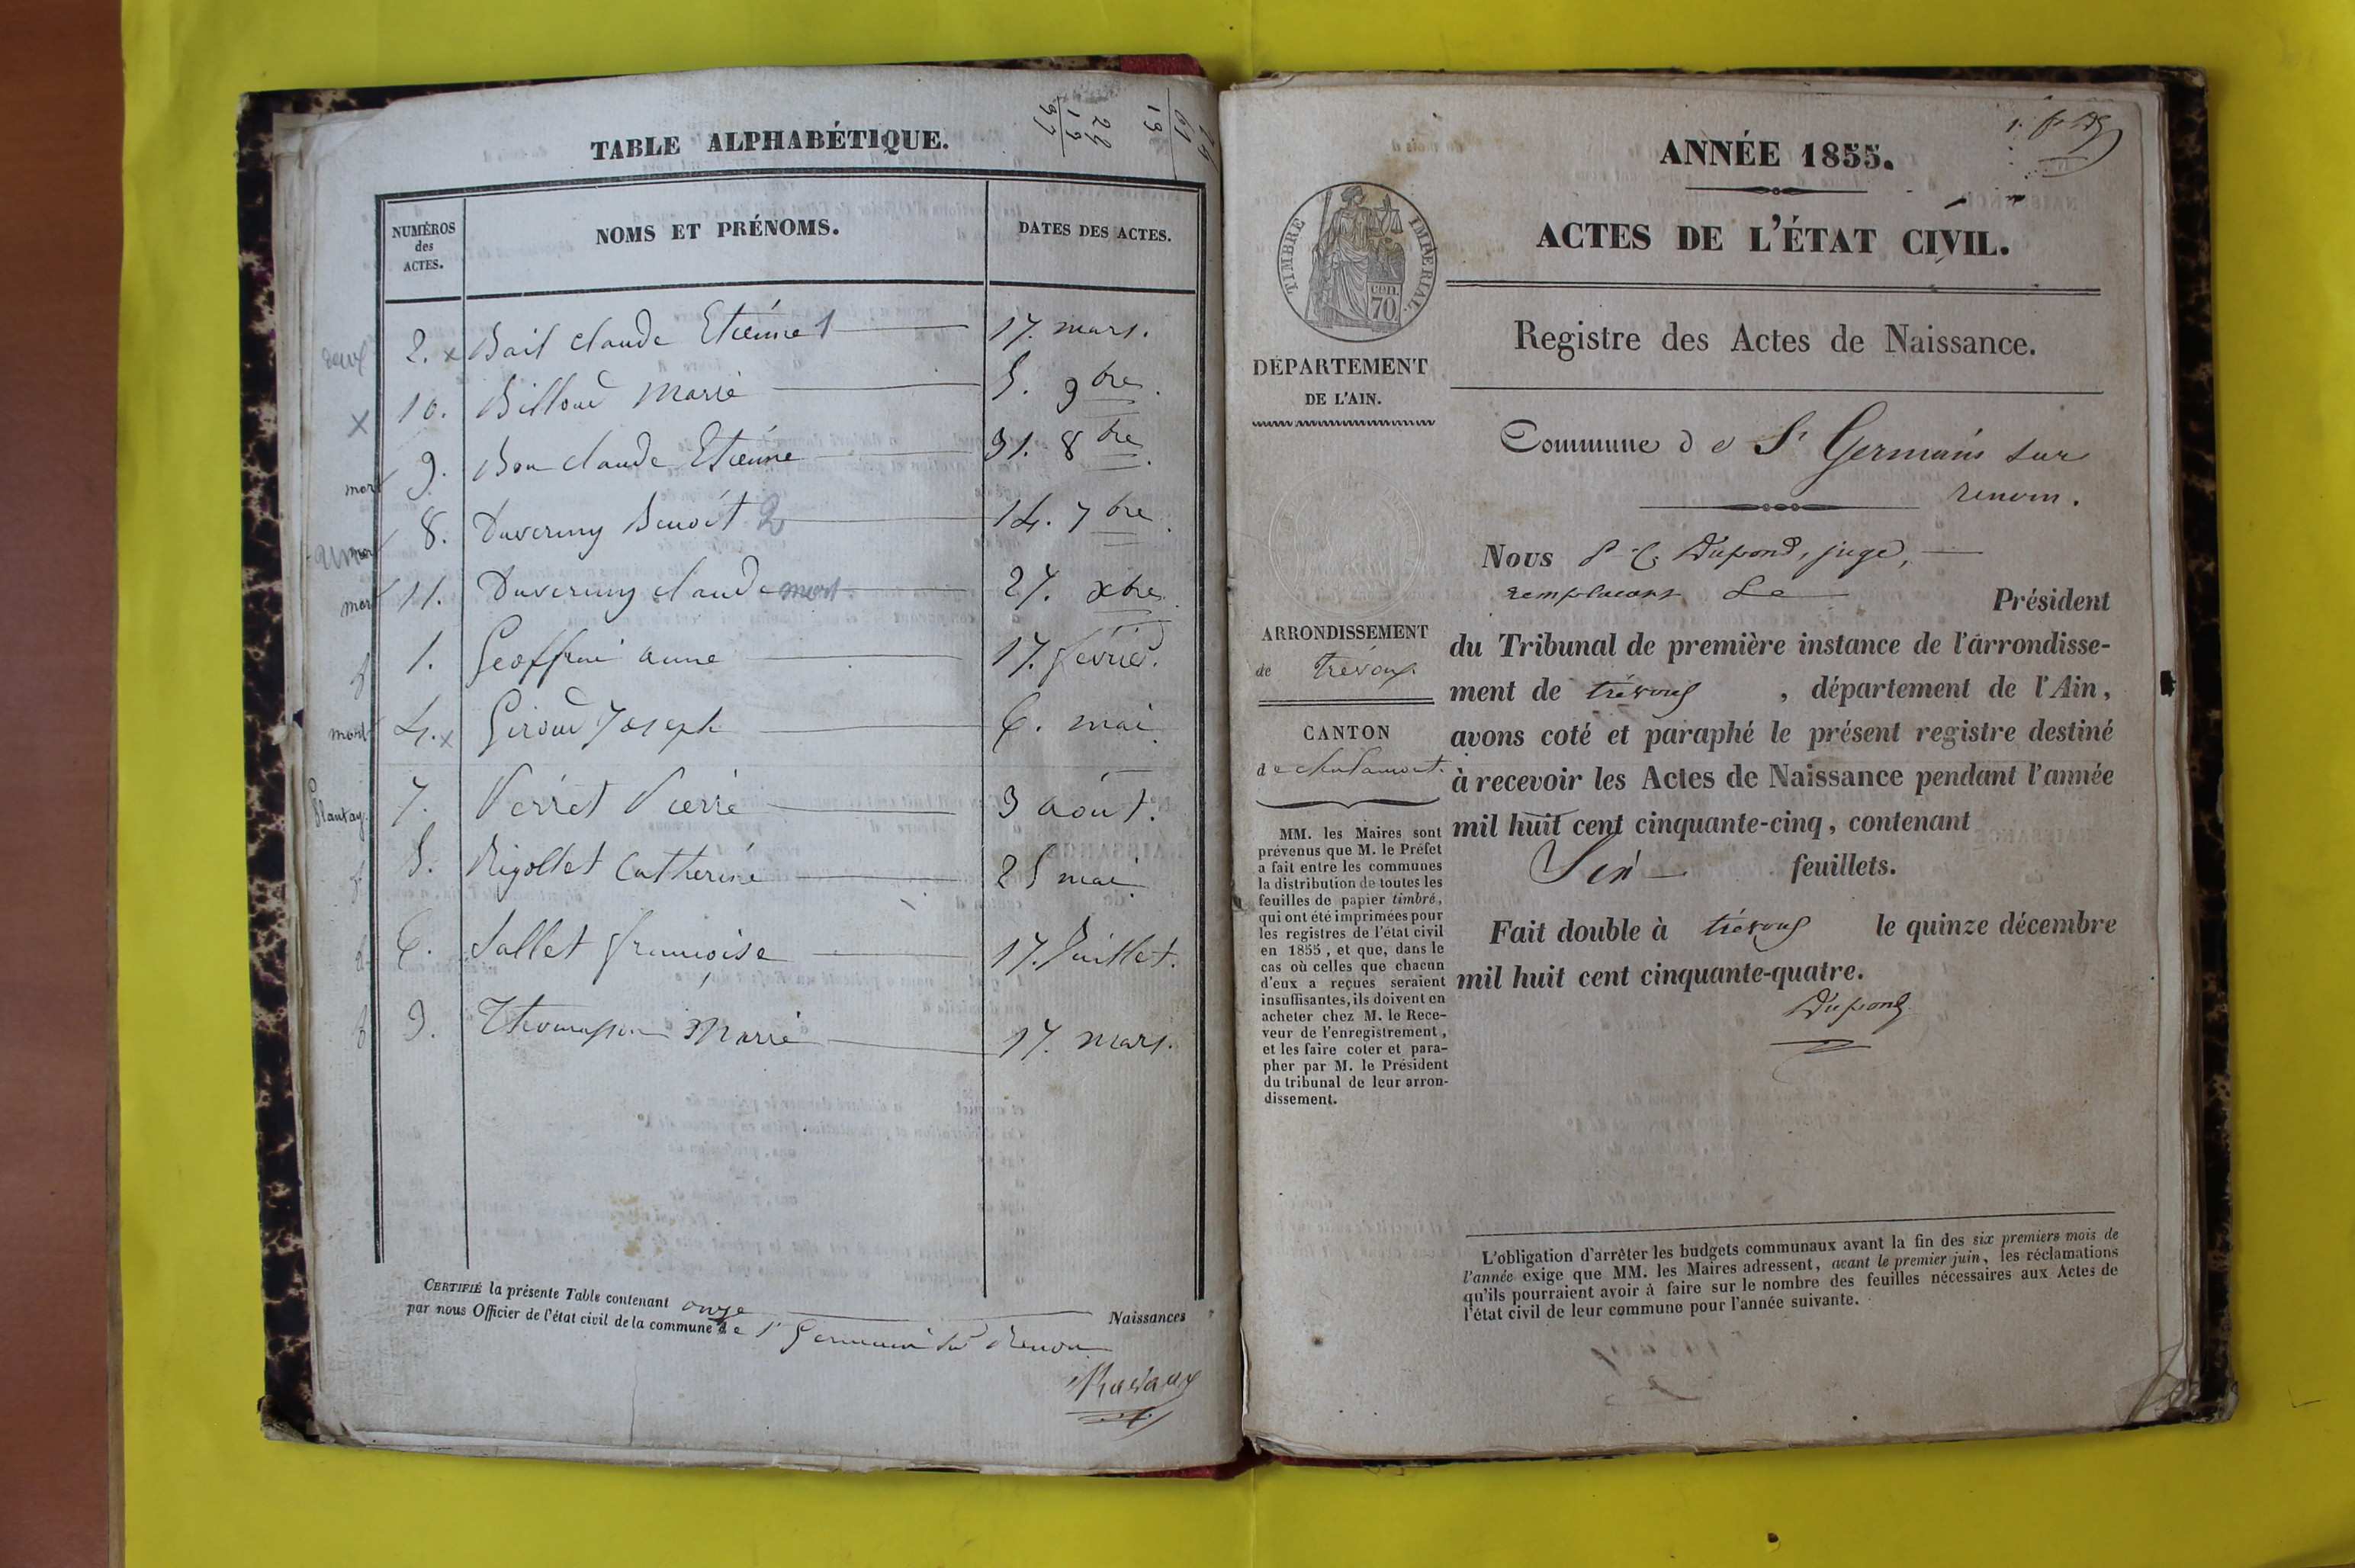 TABLE ALPHABÉTIQUE.
NUMÉROS des ACTES. NOMS ET PRÉNOMS. DATES DES ACTES.
2. x Bail Claude Etienne 1 17. mars.
x 10. Billoud Marie 5. 9bre.
mort 9. Bon Claude Etienne 31. 8bre.
mort 8. Duverny Benoît 2 14. 7bre.
mort 11. Duverny Claude mort 27. xbre.
f 1. Geoffrai anne 17. février.
mort 4. x Giroud Joseph 6. mai.
Plantay. 7. Perret Pierre 3 août.
f. 5. Rigollet Catherine 25 mai.
f. 6. Sallet françoise 17. Juillet.
f 3. Thomasson Marie 17. mars.
CERTIFIÉ la présente Table contenant onze Naissances
par nous Officier de l'état civil de la commune de St Germain sur Renon
24
61
13
24
13
37
ANNÉE 1855.
ACTES DE L'ÉTAT CIVIL.
TIMBRE IMPÉRIAL.
CEN.
70
Registre des Actes de Naissance.
DÉPARTEMENT
DE L'AIN.
Commune de St Germain sur
renom.
Nous Dupond, juge,
remplaçant Le Président
ARRONDISSEMENT
de trévoux
CANTON
de chalamont.
du Tribunal de première instance de l'arrondisse-
ment de trévoux, département de l'Ain,
avons coté et paraphé le présent registre destiné
à recevoir les Actes de Naissance pendant l'année
mil huit cent cinquante-cinq, contenant
Six feuillets.
Fait double à trévoux le quinze décembre
mil huit cent cinquante-quatre.
Dupond
MM. les Maires sont
prévenus que M. le Préfet
a fait entre les communes
la distribution de toutes les
feuilles de papier timbré,
qui ont été imprimées pour
les registres de l'état civil
en 1855, et que, dans le
cas où celles que chacun
d'eux a reçues seraient
insuffisantes, ils doivent en
acheter chez M. le Rece-
veur de l'enregistrement,
et les faire coter et para-
pher par M. le Président
du tribunal de leur arron-
dissement.
L'obligation d'arrêter les budgets communaux avant la fin des six premiers mois de
l'année exige que MM. les Maires adressent, avant le premier juin, les réclamations
qu'ils pourraient avoir à faire sur le nombre des feuilles nécessaires aux Actes de
l'état civil de leur commune pour l'année suivante.